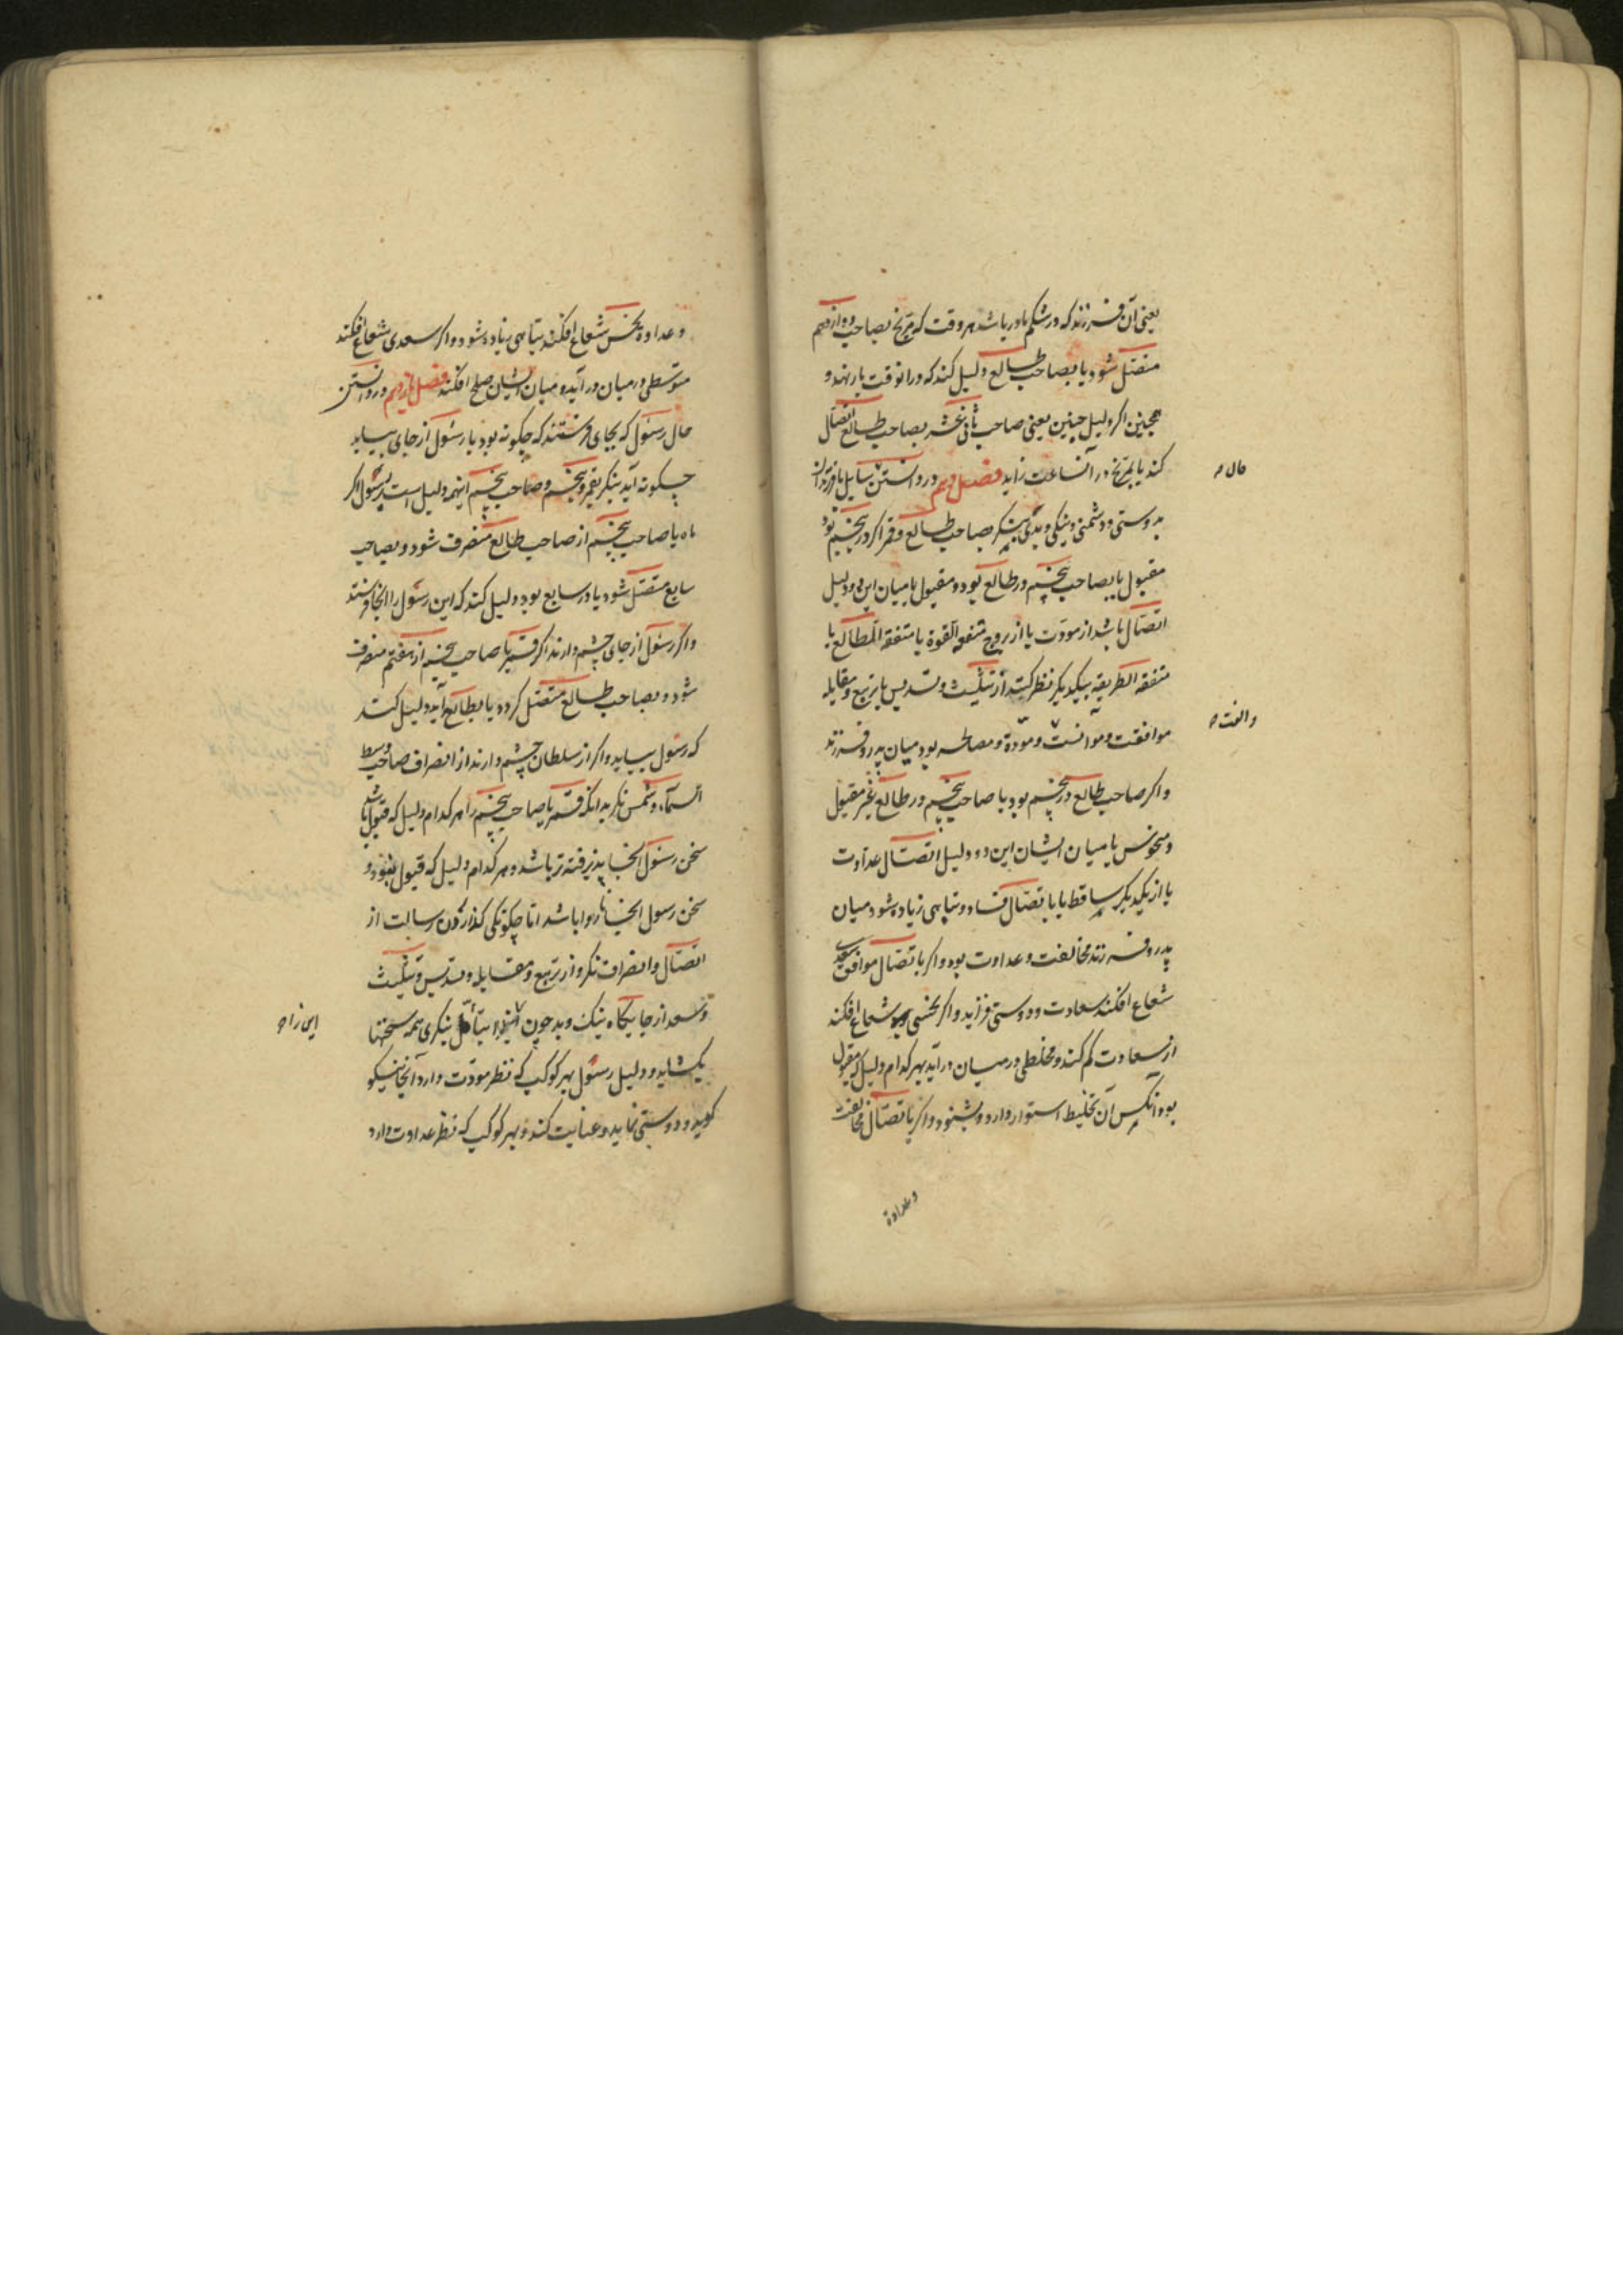 یعنی آن فرزند که در شکم مادر باشد هر وقت که مریخ بصاحب دوازدهم
متصل شود یا بصاحب طالع دلیل کند که در انوقت بار نهد و
همچنین اکر دلیل جنین یعنی صاحب ثانی عشر بصاحب طالع اتصال
کند یا بمریخ در آنساعت زاید فصل دهم در دانستن سایل با فرزندان
حال ه
بدوستی و دشمنی و نیکی و بدی بنکر بصاحب طالع و قمر اکر در پنجم بود
مقبول یا بصاحب پنجم در طالع بود و مقبول یا میان این دو دلیل
اتصال باشد از مودت یا از بروج متفقه القوة یا متفقه المطالع یا
متفقه الطریقه بیکدیکر نظر کنند از تثلیث و تسدیس یا تربیع و مقابله
موافقت و موانست و مودة و مصالحه بود میان پدر و فرزند
والفت ه
و اکر صاحب طالع در پنجم بود یا صاحب پنجم در طالع غیر مقبول
و منحوس یا میان ایشان این دو دلیل اتصال عداوت
یا از یکدیکر ساقط یا باتصال فساد و تباهی زیاده شود میان
پدر و فرزند مخالفت و عداوت بود و اکر باتصال موافق سعدی
شعاع افکند سعادت و دوستی فزاید و اکر نحسی شعاع افکند
از سعادت کم کند و مخلطی در میان در آید بهر کدام دلیل که مقبول
بود انکس آن تخلیط استوار دارد و بشنود و اکر باتصال مخالفت
وعداوة
و عداوة نحس شعاع افکند تباهی زیاده شود و اکر سعدی شعاع افکند
متوسطی در میان در آید و میان ایشان صلح افکند فصل یازدهم در دانستن
حال رسول که بجای فرستند که چکونه بود یا رسول از جای بیاید
چکونه آید بنکر بقمر و پنجم و صاحب پنجم اینهمه دلیل است برسول اکر
ماه یا صاحب پنجم از صاحب طالع منصرف شود و بصاحب
سابع متصل شود یا در سابع بود دلیل کند که این رسول را انجا فرستند
و اکر رسول از جای چشم دارند اکر قمر یا صاحب پنجم از هفتم منصرف
شود و بصاحب طالع متصل کردد یا بطالع آید دلیل کند
که رسول بیاید و اکر از سلطان چشم دارند از انصراف صاحب وسط
السماء و شمس نکر بدانکه قمر یا صاحب پنجم را هر کدام دلیل که قبول باشد
سخن رسول انجا پذیرفته تر باشد و هر کدام دلیل که قبول نبود و
سخن رسول انجا ناروا باشد اما چکونکی کذاردن رسالت از
اتصال و انصراف نکر و از تربیع و مقابله و تسدیس و تثلیث
و سعد از جایکاه نیک و بد چون بتأمل بنکری همه سخنها
این را ه
بکشاید و دلیل رسول بهر کوکب که نظر مودت دارد آنجا نیکو
کوید و دوستی نماید و عنایت کند و بهر کوکب که نظر عداوت دارد